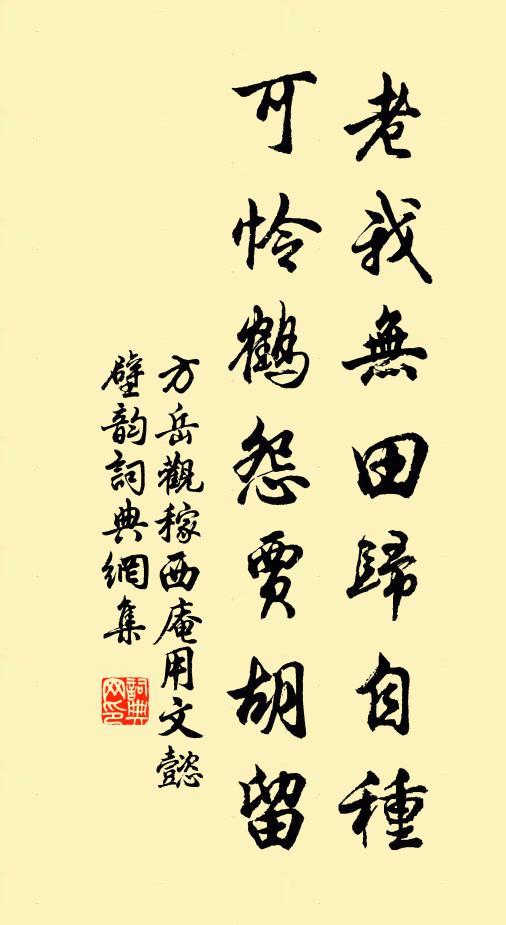 老我無田歸自種
可怜鶴怨賈胡留
方岳觀稼西庵用文懿
壁韵詞典網集
詞典網印